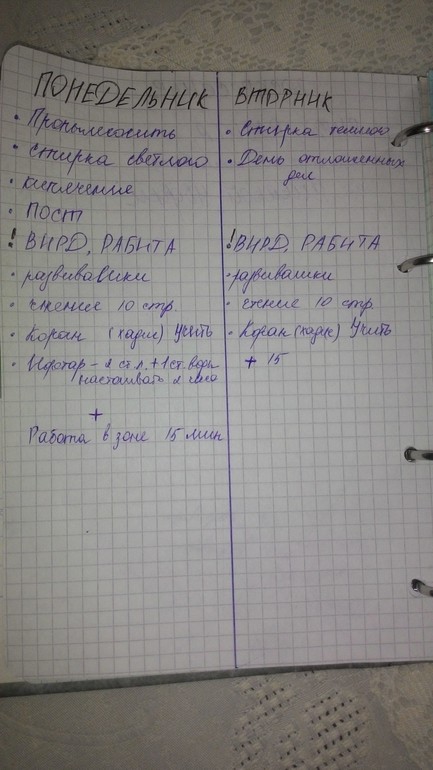 ПОНЕДЕЛЬНИК
• Пропылесосить
• Стирка светлого
• кипячение
• ПОСТ
! ВИРД, РАБИТА
• развивавики
• чтение 10 стр.
• Коран (хадис) Учить
- 2 ст.л. + 1 ст. воды
настаивать 2 часа
+
Работа в зоне 15 мин
ВТОРНИК
• Стирка темного
• День отложенных
дел
! ВИРД, РАБИТА
• развивашки
• чтение 10 стр.
• Коран (хадис) Учить
+ 15